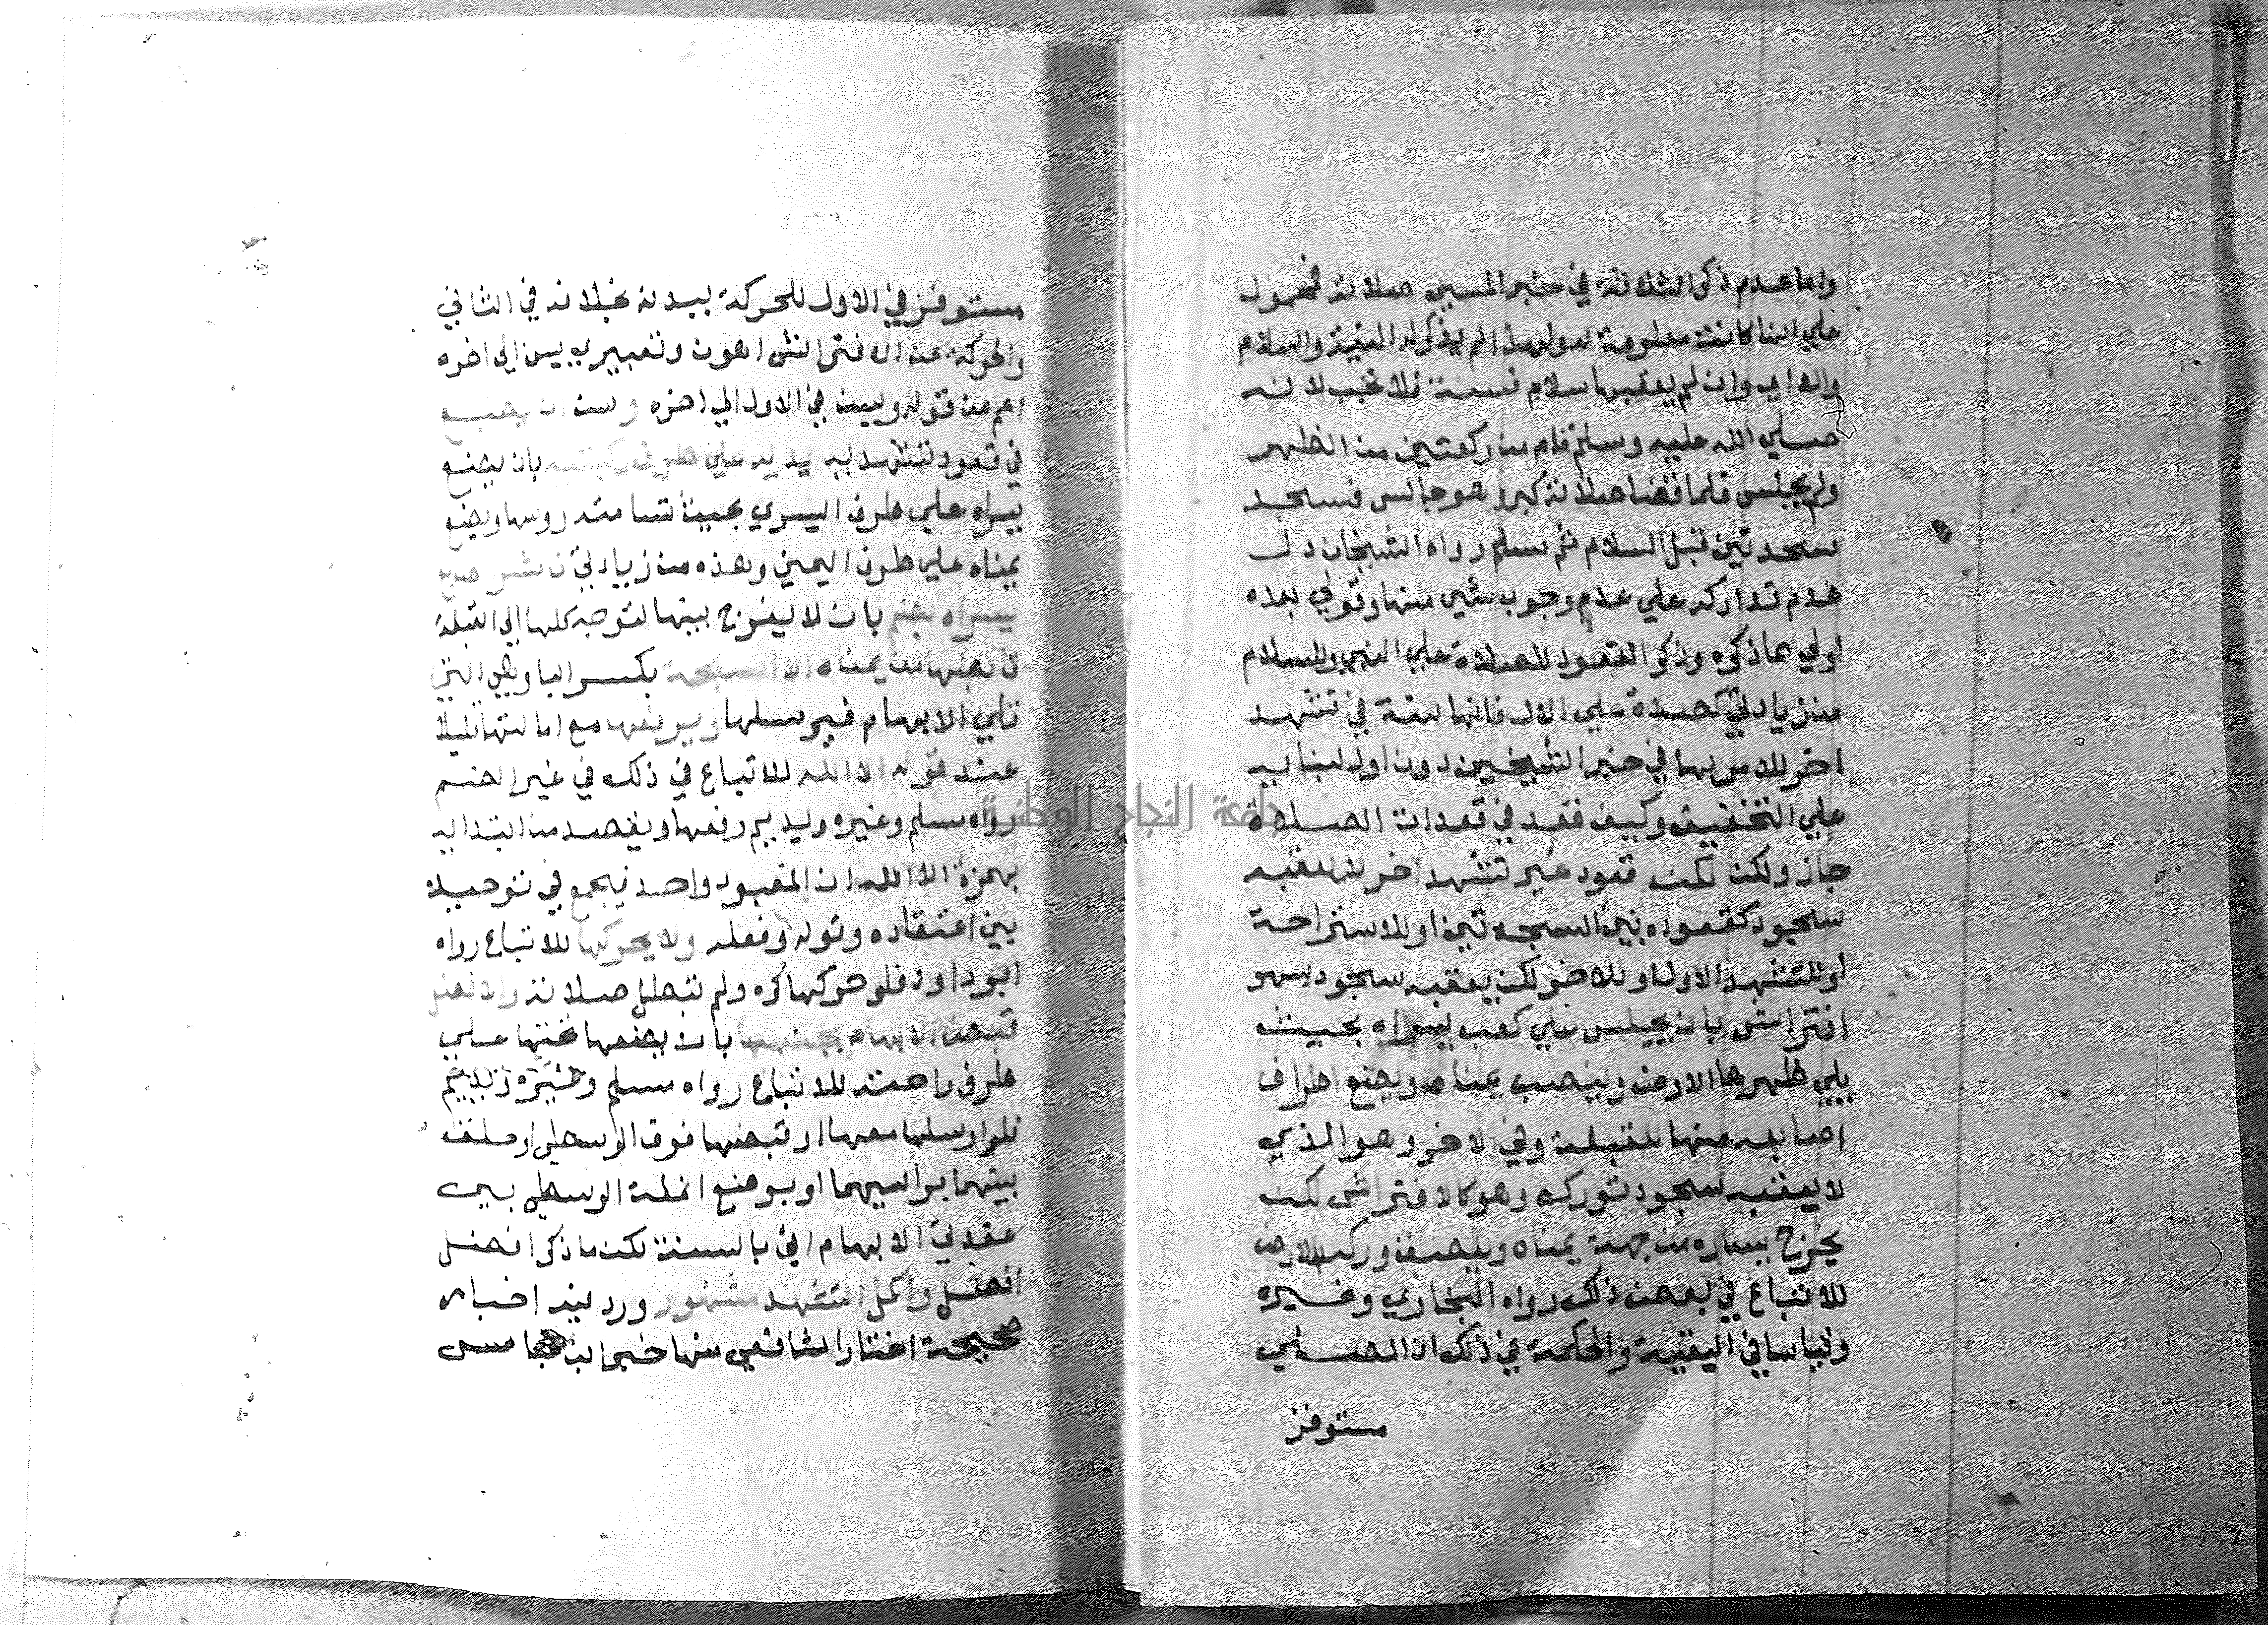 واما عدم ذكر الثلاثة في خبر المسي صلاته فمحمول
علي انها كانت معلومة له ولهذا لم يذكر له النية والسلام
والا اي وان لم يعقبها سلام فسنة فلا تجب لانه
صلي الله عليه وسلم قام من ركعتين من الظهر
ولم يجلس فلما قضا صلاته كبر وهو جالس فسجد
سجدتين قبل السلام ثم سلم رواه الشيخان دل
عدم تداركه علي عدم وجوب شي منها وقولي بعده
اولي مما ذكره وذكر القعود للصلاة علي النبي وللسلام
من زيادتي كصلاة علي الال فانها سنة في تشهد
اخر للامر بها في خبر الشيخين دون اول لبنايه
علي التخفيف وكيف قعد في قعدات الصلاة
جاز ولكن لكن قعود غير تشهد اخر لا يعقبه
سجود كقعوده بين السجدتين او للاستراحة
او للتشهد الاول او للاخر لكن يعقبه سجود سهو
افتراش بان يجلس علي كعب يسراه بحيث
يلي ظهرها الارض وينصب يمناه ويضع اطراف
اصابعه منها للقبلة وفي الاخر وهو الذي
لا يعقبه سجود تورك وهو كالافتراش لكن
يخرج يساره من جهة يمناه ويلصق وركه بالارض
للاتباع في بعض ذلك رواه البخاري وغيره
وقياسا في البقية والحكمة في ذلك ان المصلي
مستوفز
مستوفز في الاول للحركة بيدنه بخلافه في الثاني
والحركة عن الافتراش اهون وتعبيري بيسن الي اخره
اعم من قوله ويسن في الاول الي اخره وسن ان يضع
في قعود تشهد به يديه علي طرف ركبتيه بان يضع
يسراه علي طرف اليسري بحيث تسامته روسها ويضع
يمناه علي طرف اليمني وهذه من زيادتي ناشر اصابع
يسراه بضم بان لا يفرج بينها لتوجه كلها الي القبلة
قابضها من يمناه الا المسبحة بكسر البا وهي التي
تلي الابهام فيرسلها ويرفعها مع امالتها قليلا
عند قوله الا الله للاتباع في ذلك في غير الضم
رواه مسلم وغيره ويديم رفعها ويقصد من ابتدايه
بهمزة الا الله ان المعبود واحد فيجمع في توحيده
بين اعتقاده وقوله وفعله ولا يحركها للاتباع رواه
ابو داود فلو حركها كره ولم تبطل صلاته والافضل
قبض الابهام بجنبها بان يضعها تحتها علي
طرف راحته للاتباع رواه مسلم وغيره
فلو ارسلها معها او قبضها فوق الوسطي او حلق
بينهما براسيهما او بوضع انملة الوسطي بين
عقدتي الابهام اتي بالسنة لكن ما ذكر افضل
افضل واكمل التشهد مشهور ورد فيه اخبار
صحيحة اختار الشافعي منها خبر ابن عباس
جامعة النجاح الوطنية